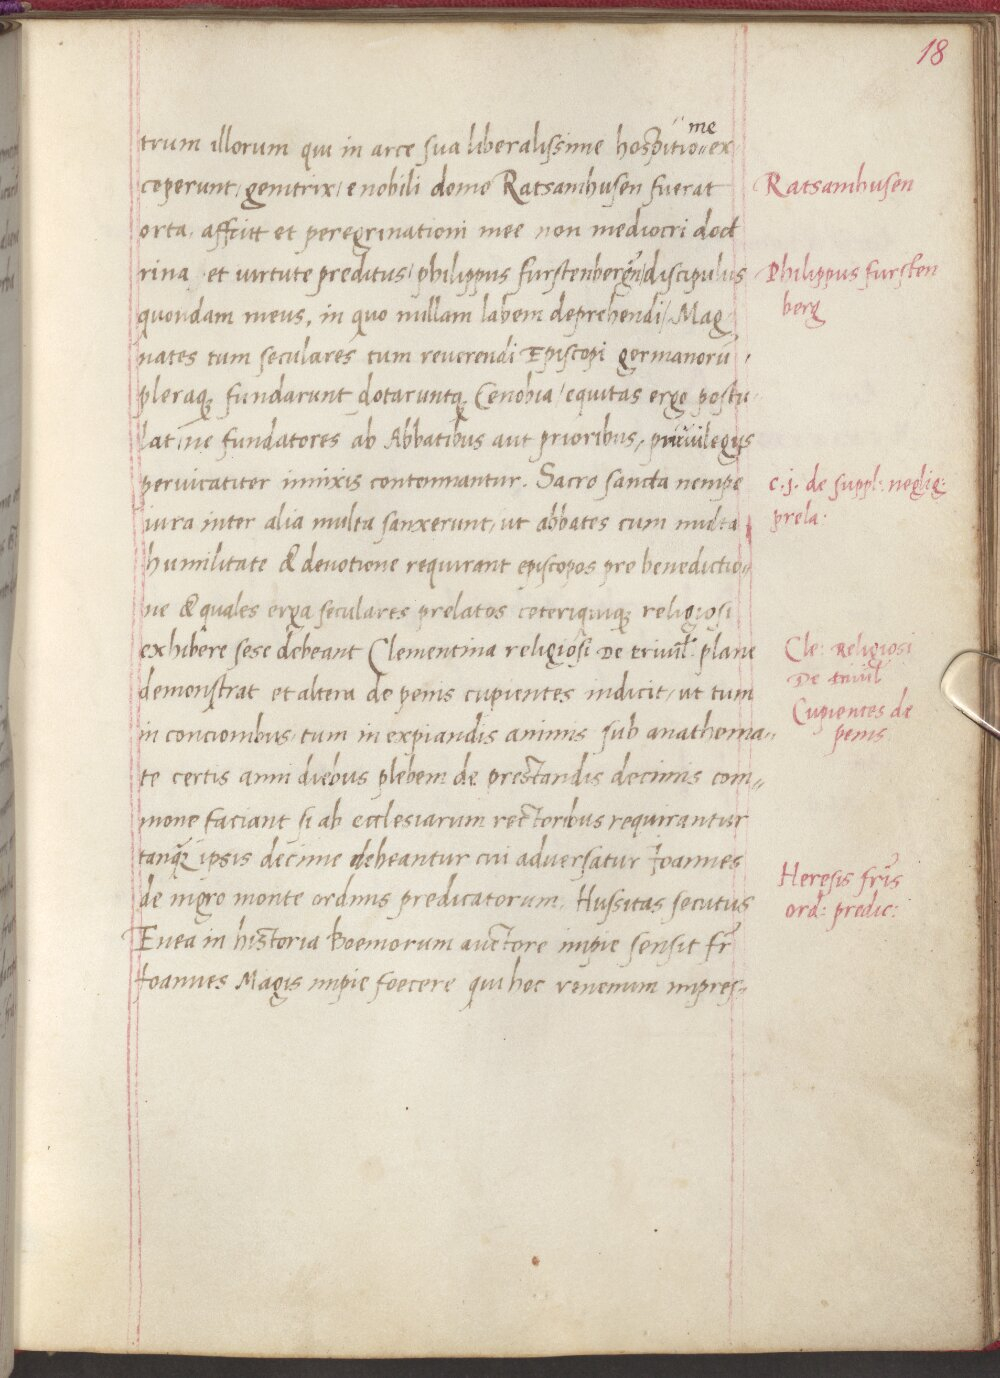 18
trum illorum qui in arce sua liberalissime hospitio me ex
ceperunt/ genitrix/ e nobili domo Ratsamhusen fuerat
Ratsamhusen
orta. affuit et peregrinationi mee non mediocri doct
rina et uirtute preditus/ philippus furstenbergñ/ discipulus
Philippus fursten
berg
quondam meus, in quo nullam labem deprehendi/ Mag
nates tum seculares tum reuerendi Episcopi germanorũ
pleraqꝫ fundarunt dotaruntqꝫ Cenobia/ equitas ergo postu
lat/ ne fundatores ab Abbatibus aut prioribus, priuilegijs
peruicatiter innixis contemnantur. Sacro sancta nempe
c. j. de suppl: neglig:
prela:
iura inter alia multa sanxerunt, ut abbates cum multa
humilitate & deuotione requirant episcopos pro benedictio-
ne & quales erga seculares prelatos ceteriquiqꝫ religiosi
exhibere sese debeant Clementina religiosi De priuil: plane
Cle: Religiosi
De priuil
demonstrat et altera de penis cupientes indicit, ut tum
Cupientes de
penis
in concionibus, tum in expiandis animis sub anathema-
te certis anni diebus plebem de prestandis decimis com-
mone faciant si ab ecclesiarum rectoribus requirantur
tanqꝫ ipsis decime debeantur cui aduersatur Joannes
Heresis fris
ord: predic:
de nigro monte ordinis predicatorum. Hussitas secutus
Enea in historia Boemorum auctore impie sensit fr̃
Joannes Magis impie foecere qui hoc venenum impres-